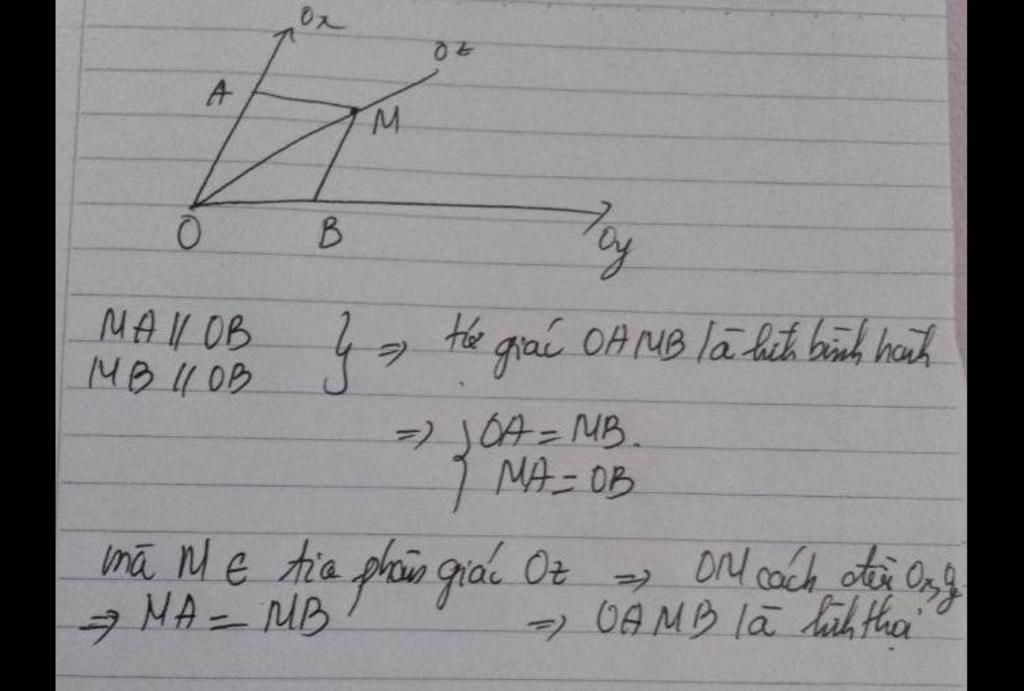 Ox
Oz
A
M
O
B
Oy
MA // OB
MB // OB
} => tứ giác OAMB là hình bình hành
=> { OA = MB.
MA = OB
mà M ∈ tia phân giác Oz => OM cách đều Ox,y
=> MA = MB => OAMB là hình thoi